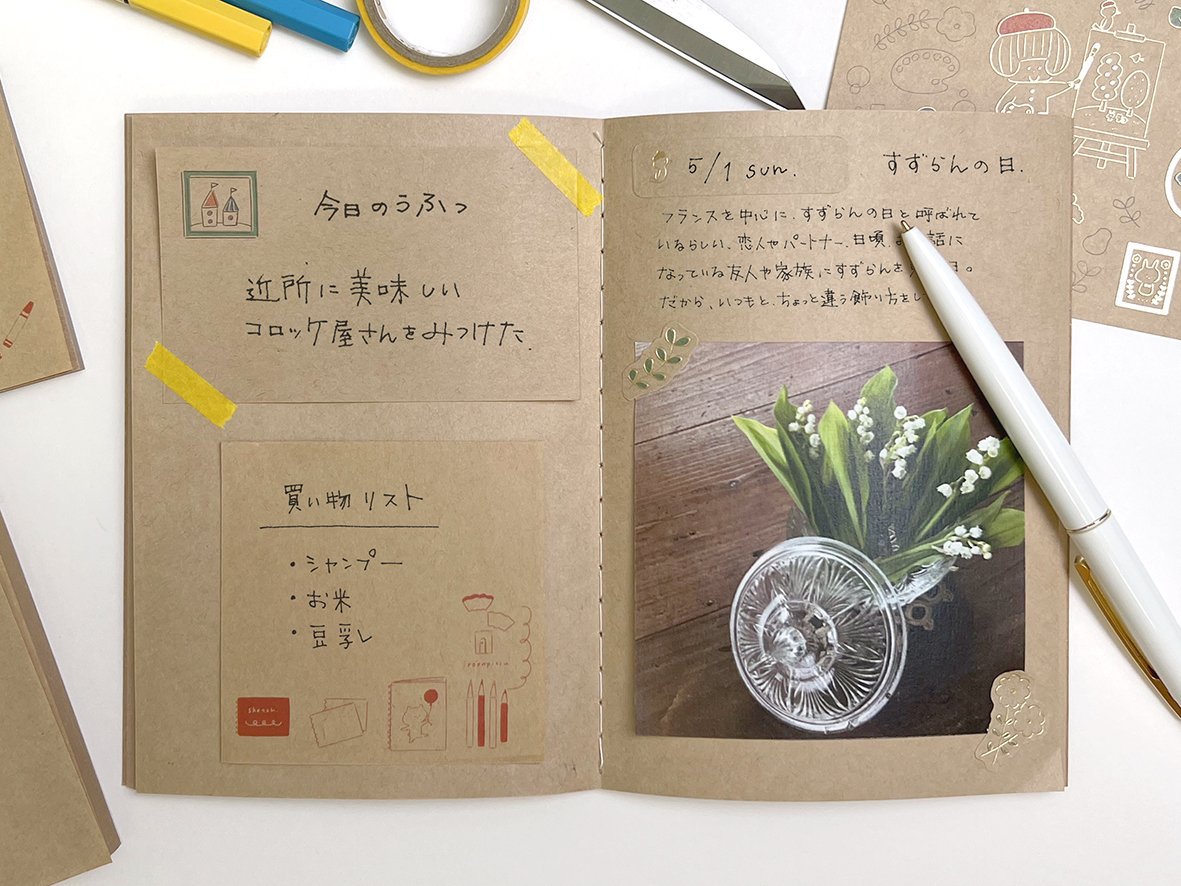 今日のうふっ
近所に美味しい
コロッケ屋さんをみつけた.
買い物リスト
・シャンプー
・お米
・豆乳
sketch
5/1 sun.
すずらんの日.
フランスを中心に、すずらんの日と呼ばれて
いるらしい。恋人やパートナー、日頃、 話に
なっている友人や家族にすずらんを 日。
だから、いつもと、ちょっと違う飾り方をし